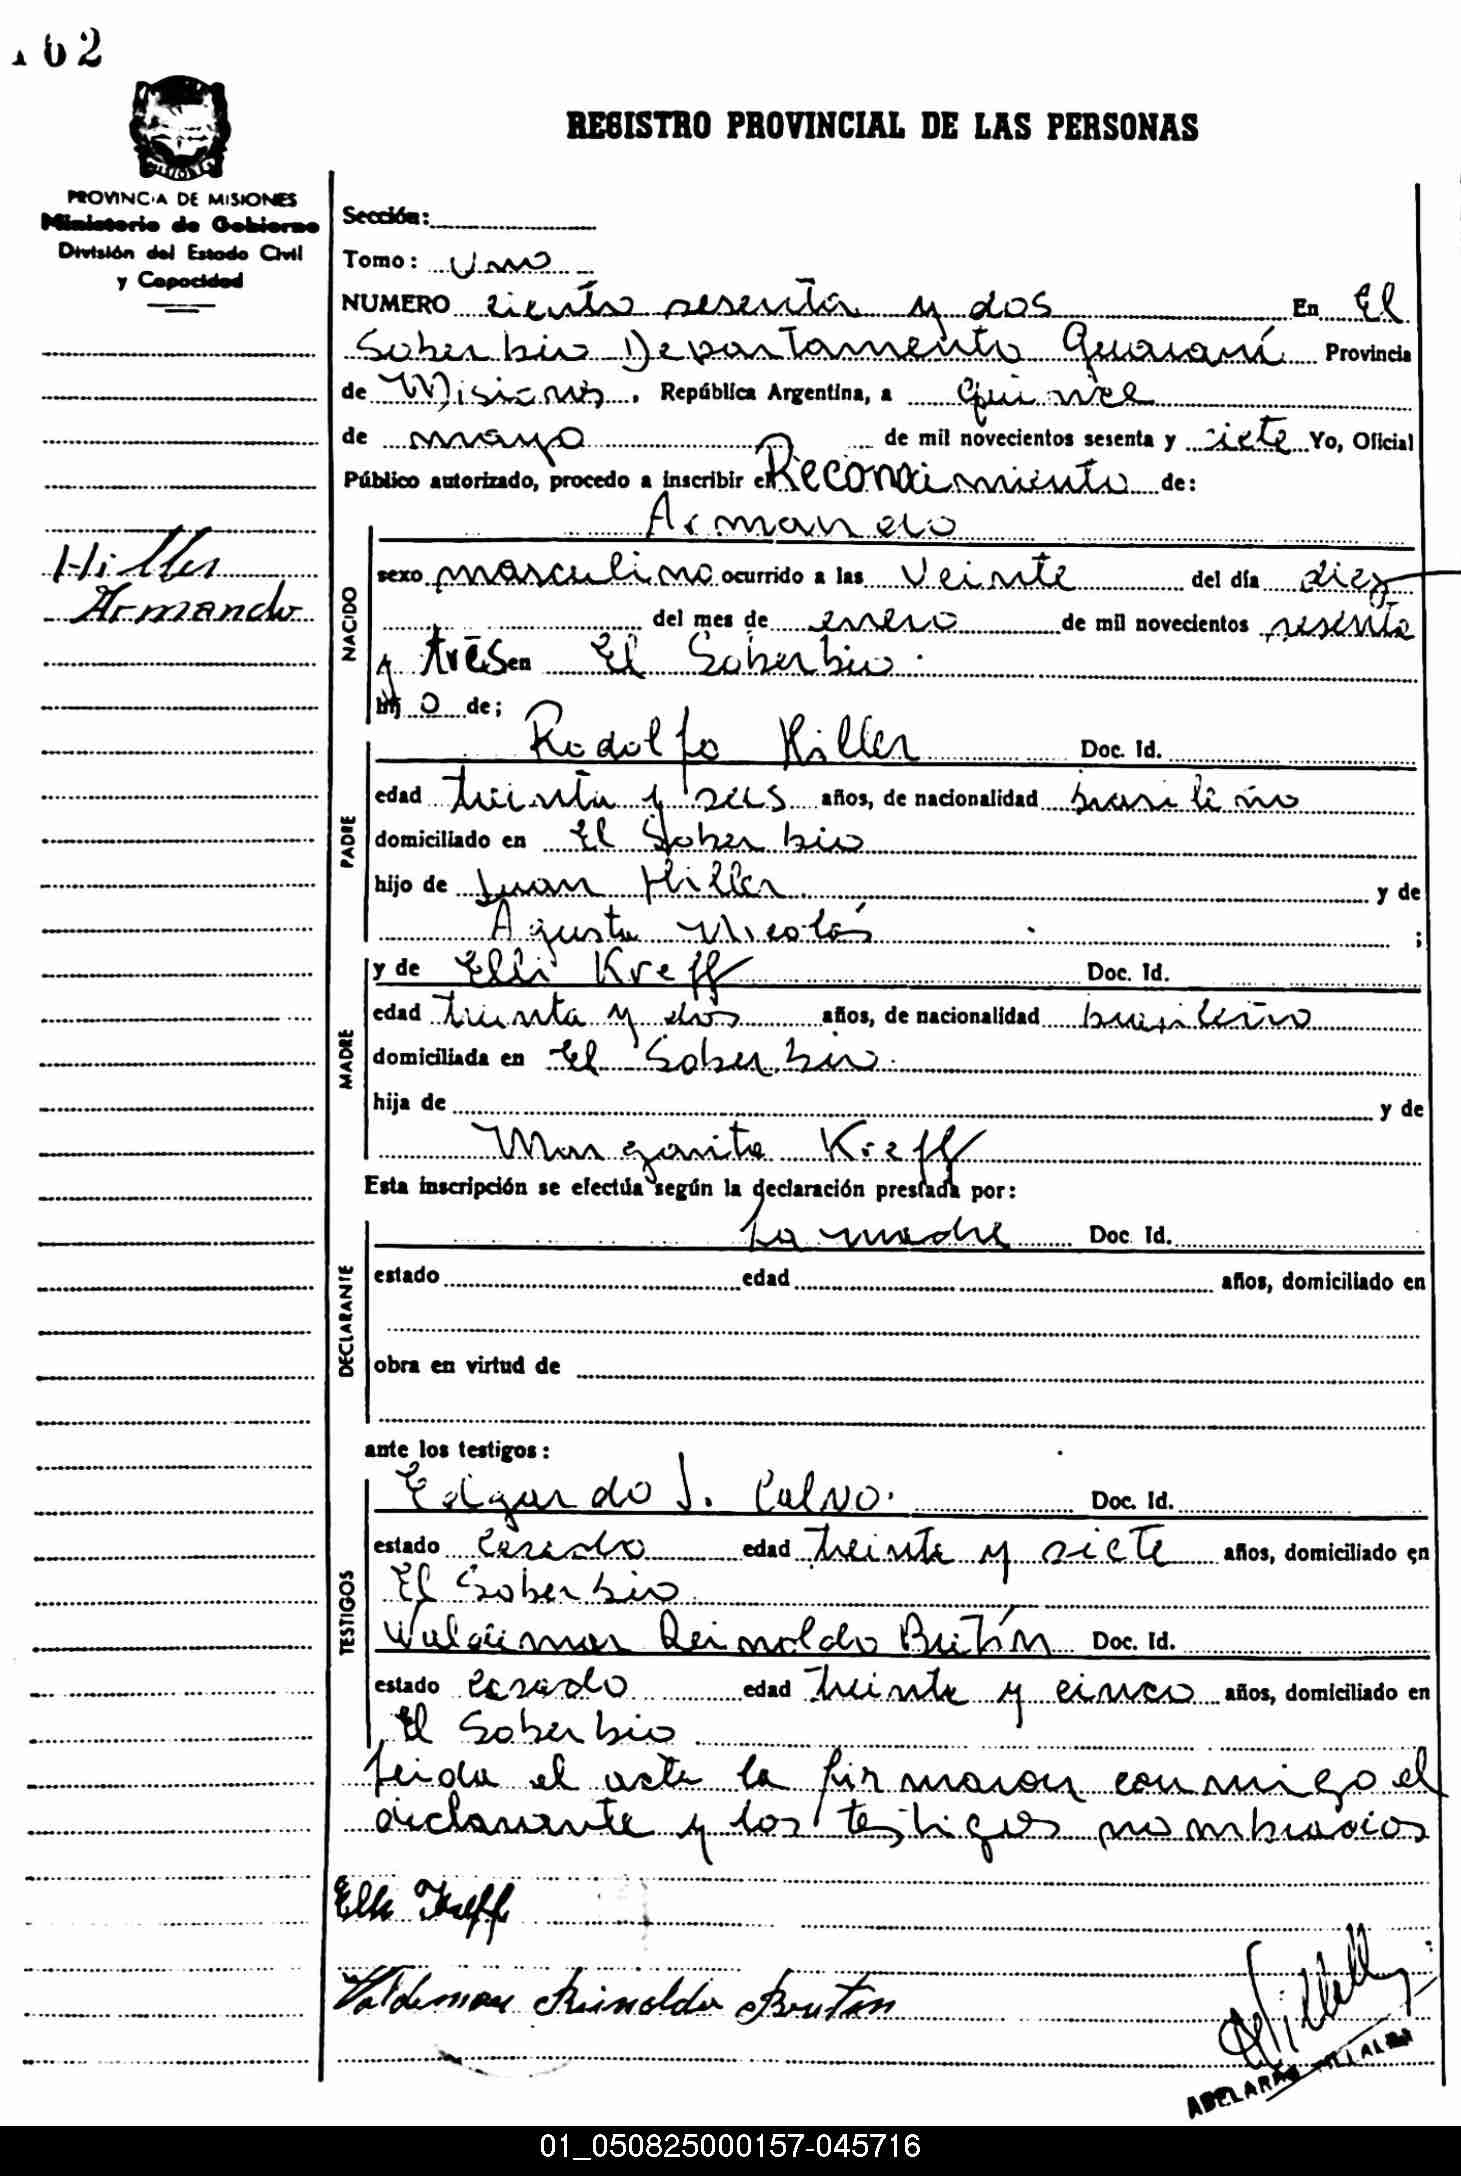 162
REGISTRO PROVINCIAL DE LAS PERSONAS
MISIONES
PROVINCIA DE MISIONES
Ministerio de Gobierno
División del Estado Civil
y Capacidad
Hiller
Armando
Sección:
Tomo: Uno
NUMERO ciento sesenta y dos En El
Soberbio Departamento Guaraní Provincia
de Misiones, República Argentina, a quince
de mayo de mil novecientos sesenta y siete Yo, Oficial
Público autorizado, procedo a inscribir el Reconocimiento de:
Armando
NACIDO
sexo masculino ocurrido a las veinte del día diez
del mes de enero de mil novecientos sesenta
y tres en El Soberbio.
hijo de;
PADRE
Rodolfo Hiller Doc. Id.
edad treinta y seis años, de nacionalidad brasileño
domiciliado en El Soberbio
hijo de Juan Hiller y de
Agusta Nicolás ;
MADRE
y de Elli Kreff Doc. Id.
edad treinta y dos años, de nacionalidad brasileño
domiciliada en El Soberbio.
hija de y de
Margarita Kreff
Esta inscripción se efectúa según la declaración prestada por:
DECLARANTE
La madre Doc. Id.
estado edad años, domiciliado en
obra en virtud de
ante los testigos:
TESTIGOS
Edgardo J. Calvo. Doc. Id.
estado casado edad treinta y siete años, domiciliado en
El Soberbio
Waldemar Reinoldo Brítín Doc. Id.
estado casado edad treinta y cinco años, domiciliado en
El Soberbio
leida el acta la firmaron conmigo el
declarante y los testigos nombrados
Elli Kreff
Valdemar Reinoldo
ADELARDO VILLALBA
01_050825000157-045716